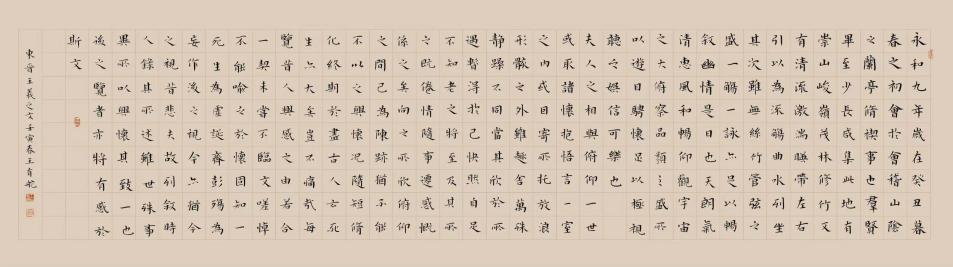 永和九年歲在癸丑暮
春之初會於會稽山陰
之蘭亭脩禊事也羣賢
畢至少長咸集此地有
崇山峻嶺茂林修竹又
有清流激湍暎帶左右
引以為流觴曲水列坐
其次雖無絲竹管弦之
盛一觴一詠亦足以暢
敘幽情是日也天朗氣
清惠風和暢仰觀宇宙
之大俯察品類之盛所
以遊目騁懷足以極視
聽之娛信可樂也
夫人之相與俯仰一世
或取諸懷抱悟言一室
之內或因寄所託放浪
形骸之外雖趣舍萬殊
靜躁不同當其欣於所
遇暫得於己快然自足
不知老之將至及其所
之既倦情隨事遷感慨
係之矣向之所欣俯仰
之間已為陳跡猶不能
不以之興懷況隨短脩
化終期於盡古人云死
生亦大矣豈不痛哉每
覽昔人興感之由若合
一契未嘗不臨文嗟悼
不能喻之於懷固知一
死生為虛誕齊彭殤為
妄作後之視今亦猶今
之視昔悲夫故列敘時
人錄其所述雖世殊事
異所以興懷其致一也
後之覽者亦將有感於
斯文
東晉王羲之文壬寅春王